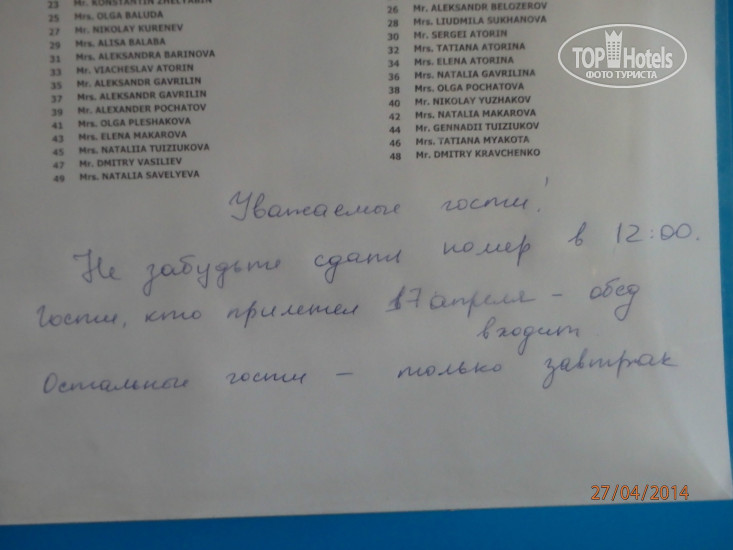 23 Mr. KONSTANTIN ZHELYABIN
25 Mrs. OLGA BALUDA
27 Mr. NIKOLAY KURENEV
29 Mrs. ALISA BALABA
31 Mrs. ALEKSANDRA BARINOVA
33 Mr. VIACHESLAV ATORIN
35 Mrs. ALEKSANDR GAVRILIN
37 Mrs. ALEKSANDR GAVRILIN
39 Mr. ALEXANDER POCHATOV
41 Mrs. OLGA PLESHAKOVA
43 Mrs. ELENA MAKAROVA
45 Mrs. NATALIIA TUIZIUKOVA
47 Mr. DMITRY VASILIEV
49 Mrs. NATALIA SAVELYEVA
26 Mr. ALEKSANDR BELOZEROV
28 Mrs. LIUDMILA SUKHANOVA
30 Mr. SERGEI ATORIN
32 Mrs. TATIANA ATORINA
34 Mrs. ELENA ATORINA
36 Mrs. NATALIA GAVRILINA
38 Mrs. OLGA POCHATOVA
40 Mr. NIKOLAY YUZHAKOV
42 Mrs. NATALIA MAKAROVA
44 Mr. GENNADII TUIZIUKOV
46 Mrs. TATIANA MYAKOTA
48 Mr. DMITRY KRAVCHENKO
TOP Hotels
ФОТО ТУРИСТА
Уважаемые гости!
Не забудьте сдать номер в 12:00.
Гости, кто прилетел 17 апреля – обед
входит
Остальные гости – только завтрак
27/04/2014